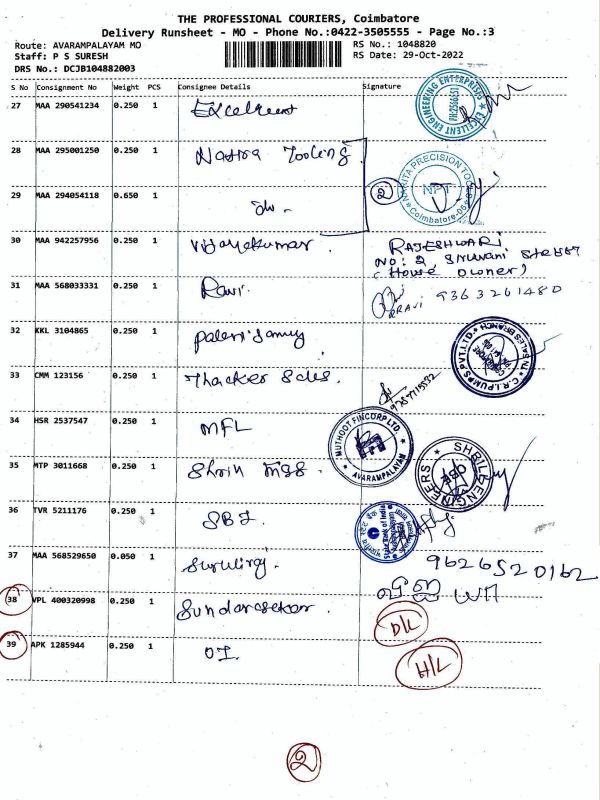 THE PROFESSIONAL COURIERS, Coimbatore
Delivery Runsheet - MO - Phone No.:0422-3505555 - Page No.:3
Route: AVARAMPALAYAM MO RS No.: 1048820
Staff: P S SURESH RS Date: 29-Oct-2022
DRS No.: DCJB104882003
S No Consignment No Weight PCS Consignee Details Signature
27 MAA 290541234 0.250 1 Excellent
EXCELLENT ENGINEERING ENTERPRISES
28 MAA 295001250 0.250 1 Tooling
29 MAA 294054118 0.650 1 2
PRECISION
NPT
Coimbatore-
30 MAA 942257956 0.250 1 Vijayakumar RAJESHWARI
NO: 2
(House owner)
31 MAA 568033331 0.250 1 Ravi RRAVI 9363261480
32 KKL 3104865 0.250 1 Palanisamy
C.R.I. PUMPS PVT. LTD. SALES BRANCH
33 CMM 123156 0.250 1 Thacker Sales.
34 HSR 2537547 0.250 1 MFL
MUTHOOT FINCORP LTD.
AVARAMPALAYAM
35 MTP 3011668 0.250 1
ENGINEERS
CBE
36 TVR 5211176 0.250 1 SBI
State Bank of India
37 MAA 568529650 0.050 1 9626520162
38 VPL 400320998 0.250 1 Sundarasekar D/L
39 APK 1285944 0.250 1 H/L
2